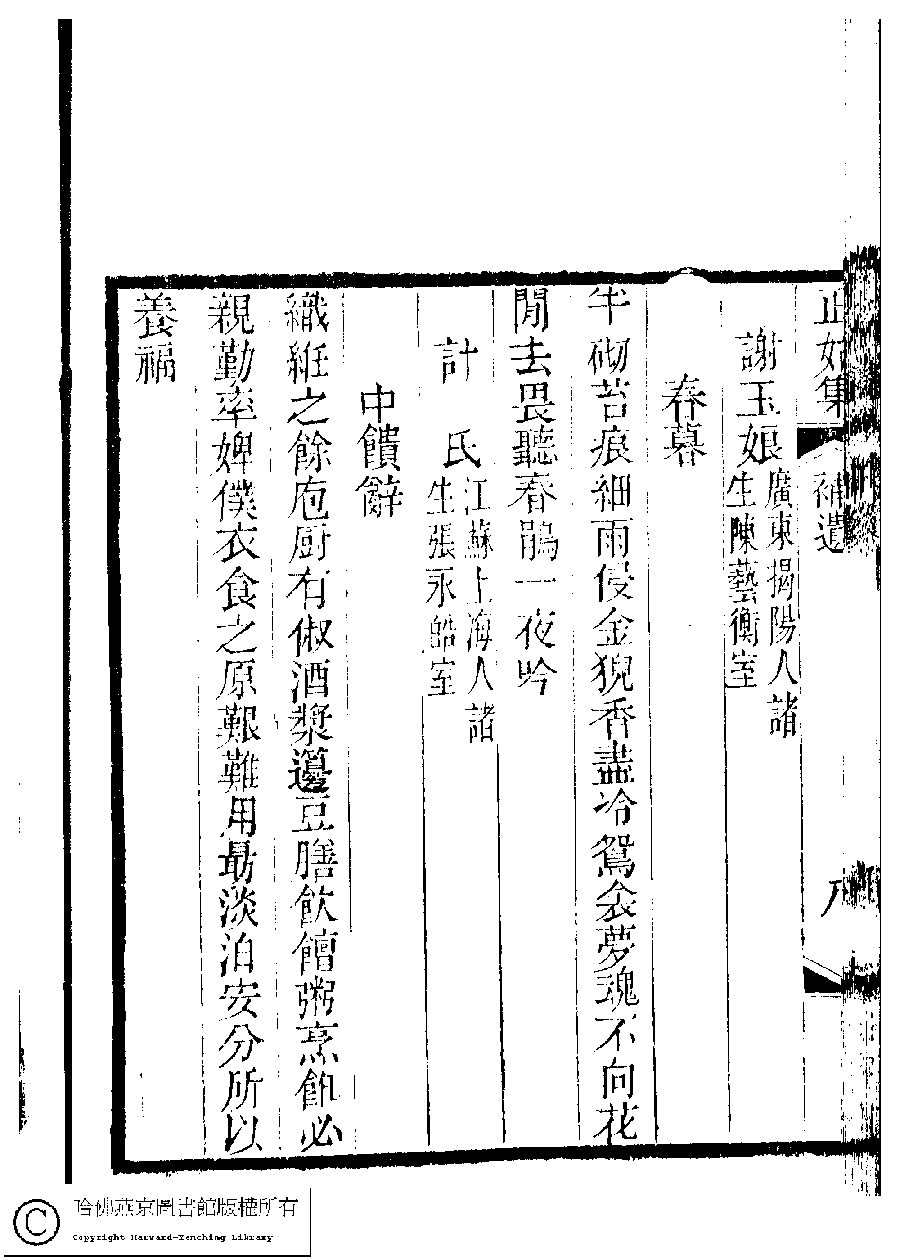 正始集 補遺 八
謝玉娘 廣東揭陽人諸
生陳藝衡室
春暮
半砌苔痕細雨侵金猊香盡冷鴛衾夢魂不向花
閒去畏聽春鵑一夜吟
計 氏 江蘇上海人諸
生張永皓室
中饋辭
織絍之餘庖厨有俶酒漿籩豆膳飲饘粥烹飪必
親勤率婢僕衣食之原艱難用最淡泊安分所以
養福
哈佛燕京圖書館版權所有
Copyright Harvard-Yenching Library